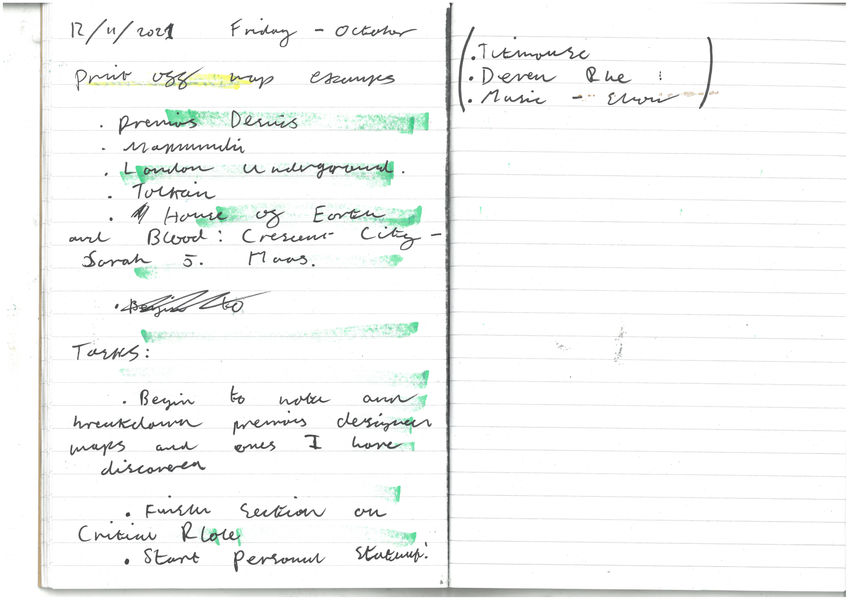 12/11/2021 Friday - October
Print off map examples
. Premios
.
. London Underground.
. Tolkain
. House of Earth
and Blood: Crescent City -
Sarah J. Maas.
. Begin to
Tasks:
. Begin to note and
breakdown premios designer
maps and ones I have
discovered
. Finish Section on
Critical Role
. Start Personal
(. Titmouse
. Deven Rue :
. Music - )